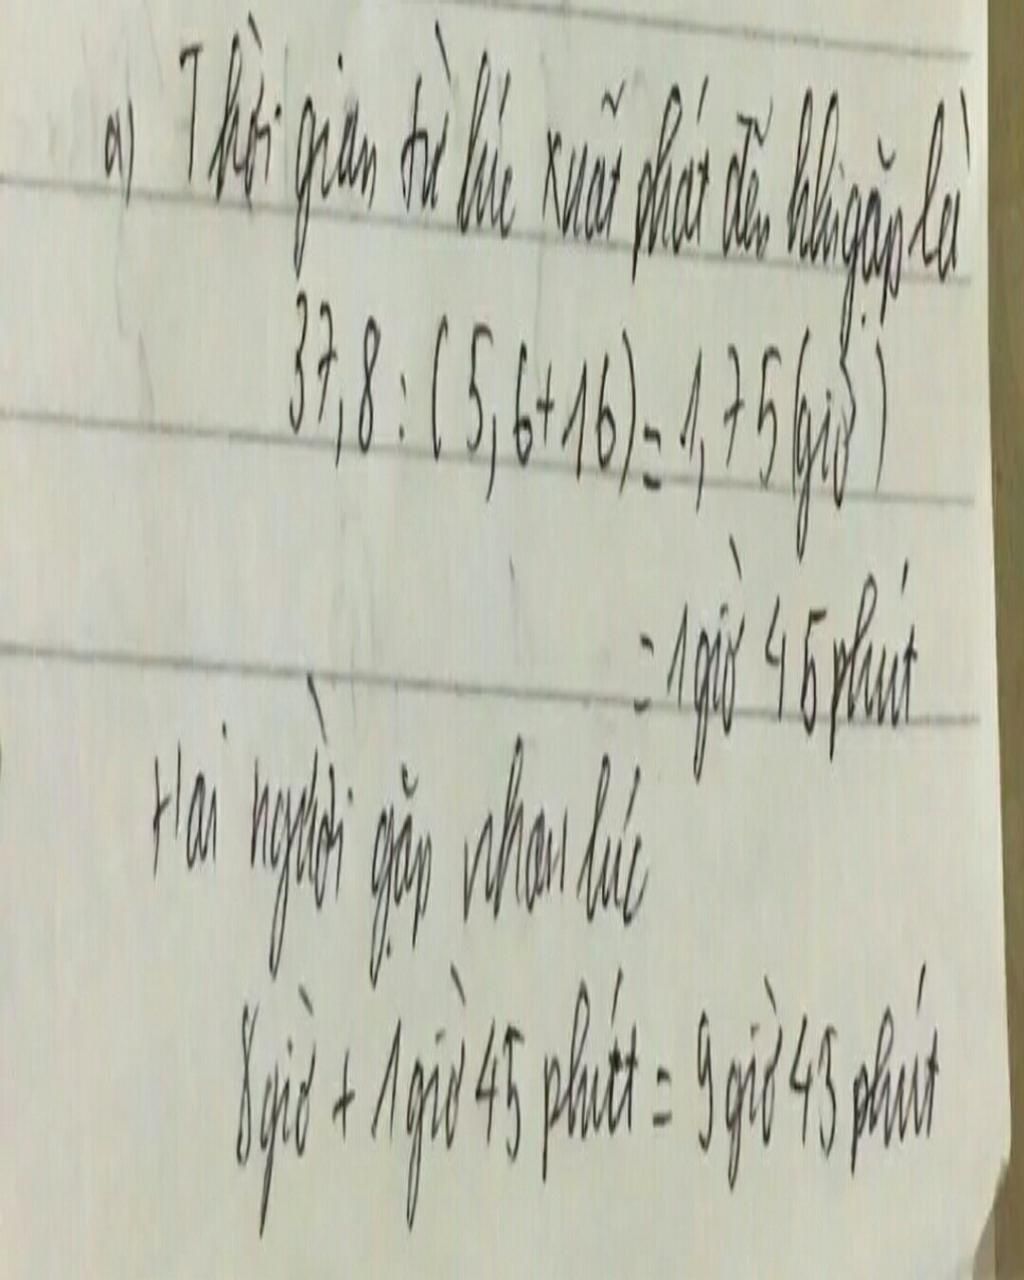 a) Thời gian từ lúc xuất phát đến khi gặp là
37,8 : (5,6+16) = 1,75 (giờ)
= 1 giờ 45 phút
Hai người gặp nhau lúc
8 giờ + 1 giờ 45 phút = 9 giờ 45 phút